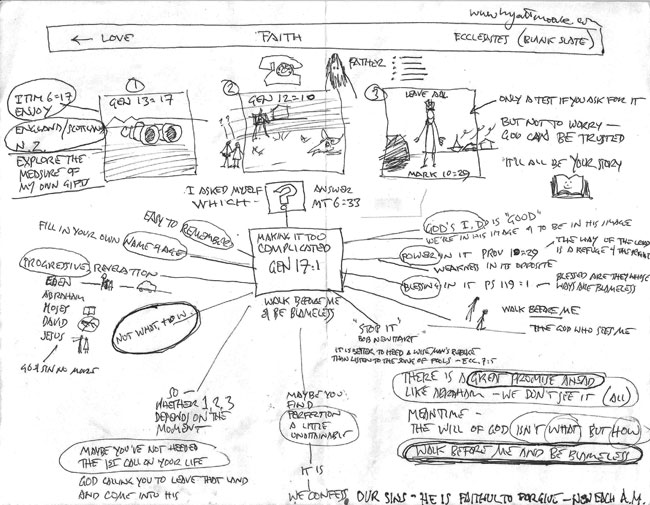 www.hyattmoore.com
← LOVE FAITH ECCLESIASTES (BLANK SLATE)
FATHER
① GEN 13=17
② GEN 12=10
③ LEAVE ALL
MARK 10=29
I TIM 6=17
ENJOY
ENGLAND/SCOTLAND
N.Z.
EXPLORE THE
MEASURE OF
MY OWN GIFTS
ONLY A TEST IF YOU ASK FOR IT
BUT NOT TO WORRY —
GOD CAN BE TRUSTED
IT'LL ALL BE YOUR STORY
I ASKED MYSELF
WHICH —
?
ANSWER
MT 6=33
EASY TO REMEMBER
FILL IN YOUR OWN NAME & AGE
PROGRESSIVE REVELATION
EDEN
ABRAHAM
MOSES
DAVID
JESUS
GO & SIN NO MORE
NOT WHAT, HOW
MAKING IT TOO
COMPLICATED
GEN 17:1
WALK BEFORE ME
& BE BLAMELESS
GOD'S I.D. IS "GOOD"
WE'RE IN HIS IMAGE & TO BE IN HIS IMAGE
POWER IN IT PROV 10=29
THE WAY OF THE LORD
IS A REFUGE
WEAKNESS IN ITS OPPOSITE
BLESSING IN IT PS 119=1
BLESSED ARE THEY WHOSE
WAYS ARE BLAMELESS
WALK BEFORE ME
THE GOD WHO SEES ME
"STOP IT"
BOB NEWHART
IT IS BETTER TO HEED A WISE MAN'S REBUKE
THAN LISTEN TO THE SONG OF FOOLS - ECC. 7:5
SO —
WHETHER 1, 2, 3
DEPENDS ON THE
MOMENT
MAYBE YOU'VE NOT HEEDED
THE 1ST CALL ON YOUR LIFE
GOD CALLING YOU TO LEAVE THAT LAND
AND COME INTO HIS
MAYBE YOU
FIND
PERFECTION
A LITTLE
UNATTAINABLE
IT IS
THERE IS A GREAT PROMISE AHEAD
LIKE ABRAHAM - WE DON'T SEE IT (ALL)
MEANTIME -
THE WILL OF GOD ISN'T WHAT BUT HOW
WALK BEFORE ME AND BE BLAMELESS
WE CONFESS OUR SINS - HE IS FAITHFUL TO FORGIVE - NEW EACH A.M.